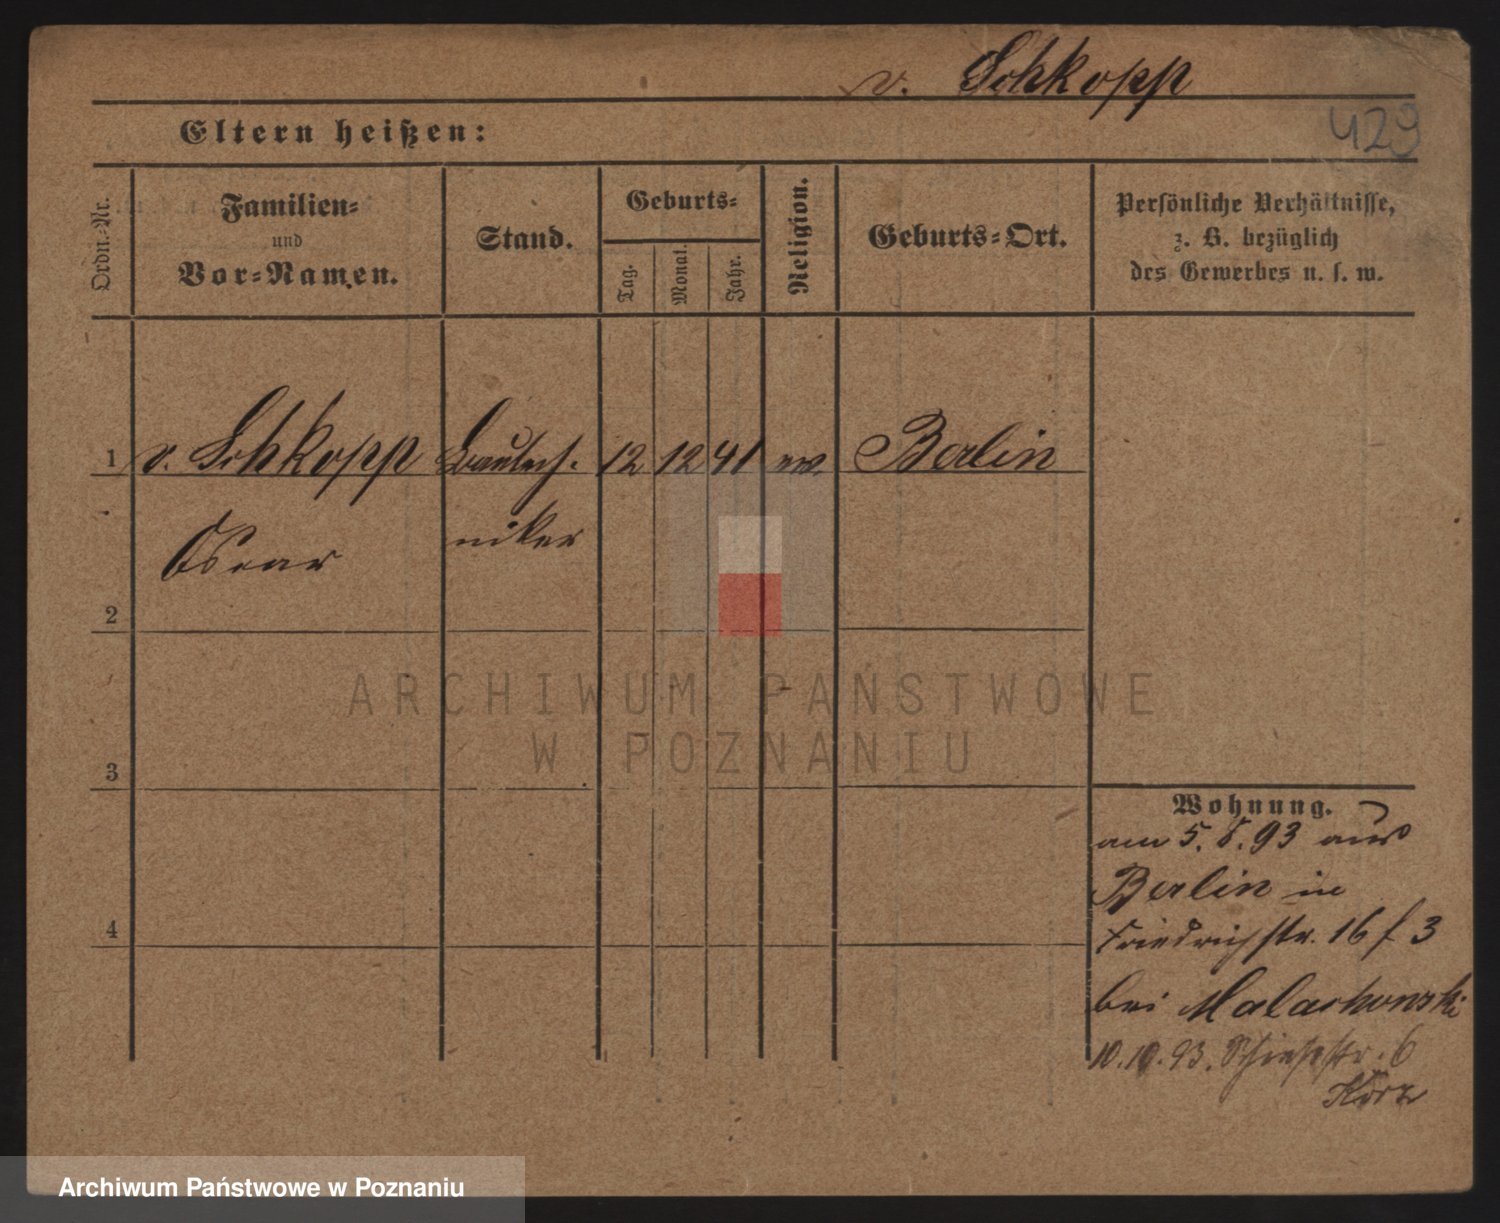 v. Schkopp
429
Eltern heißen:
Ordn.-Nr.
Familien-
und
Vor-Namen.
Stand.
Geburts-
Tag.
Monat.
Jahr.
Religion.
Geburts-Ort.
Persönliche Verhältnisse,
z. B. bezüglich
des Gewerbes u. s. w.
1 v. Schkopp Bautech- 12 12 41 ev. Berlin
Oscar niker
2
3
4
Wohnung.
am 5. 8. 93 aus
Berlin in
Friedrichstr. 16 f 3
bei Malachowski
10.10.93. 6
ARCHIWUM PAŃSTWOWE
W POZNANIU
Archiwum Państwowe w Poznaniu